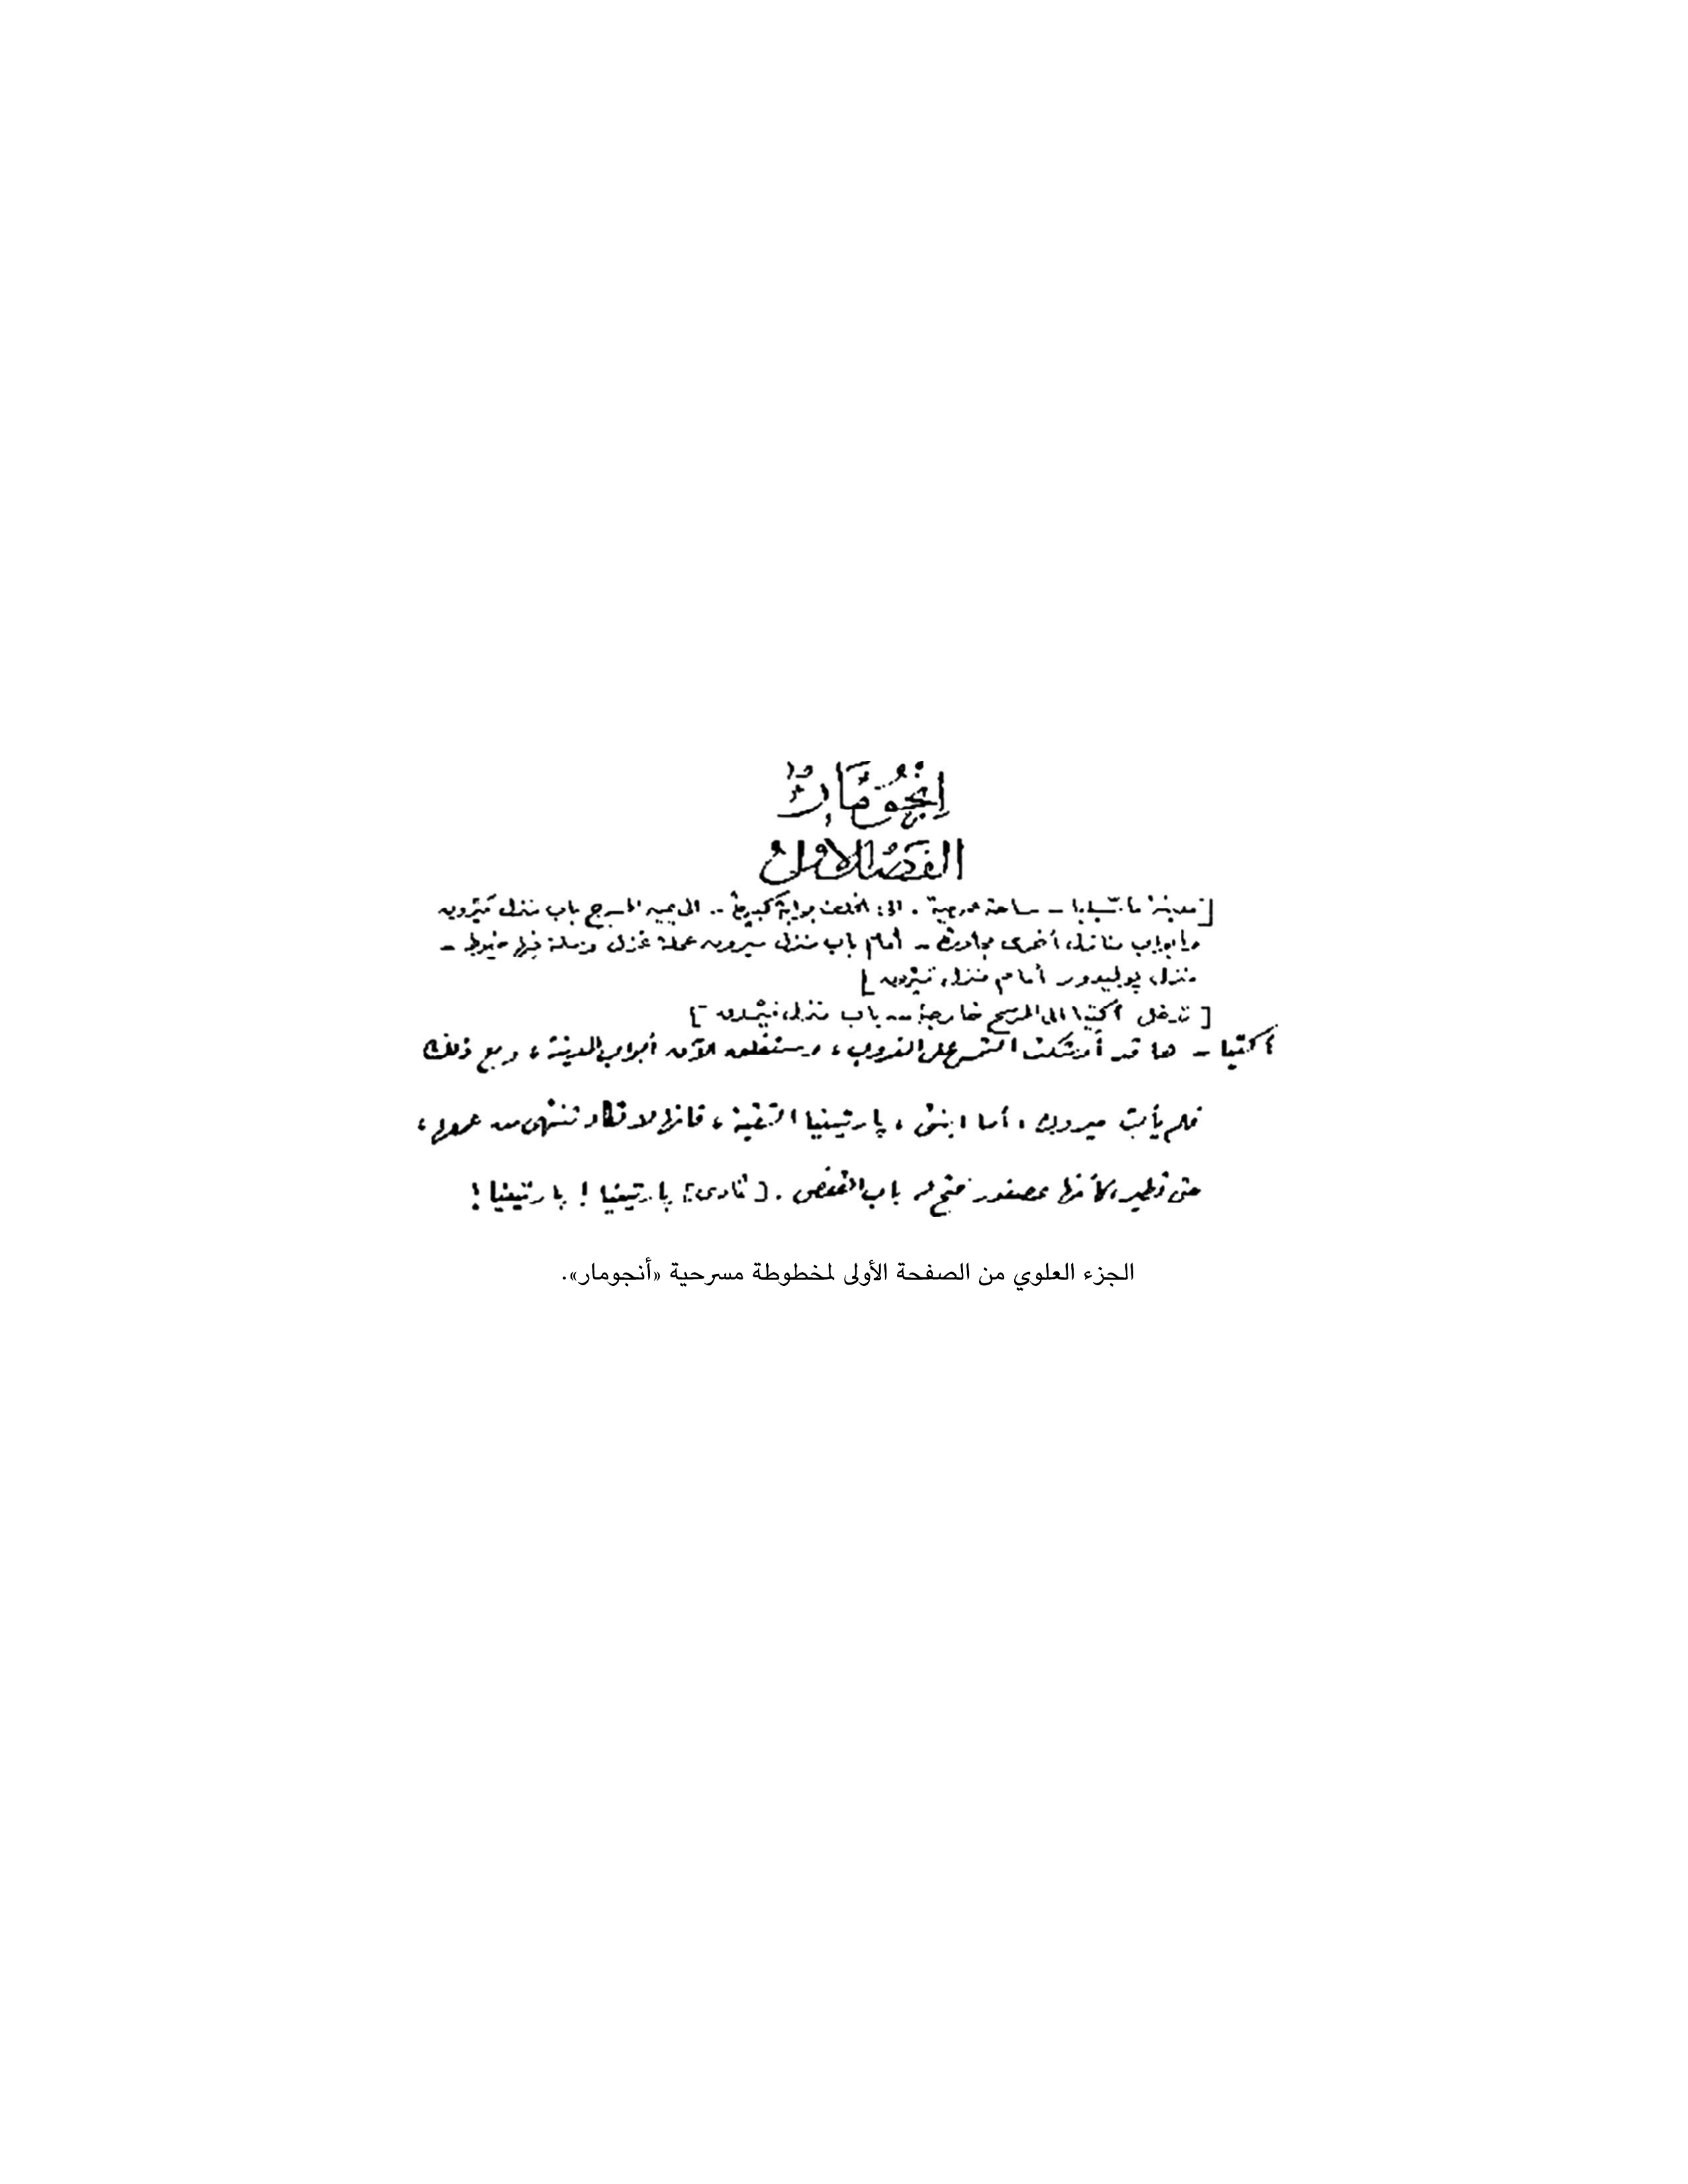 إنجومار
الفصل الأول
[مدينة ماسيليا – ساحة عمومية. إلى الخلف بوابة كبيرة – إلى يمين المسرح باب منزل ميرون
وأبواب منازل أخرى مجاورة – أمام باب منزل ميرون عجلة غزل وسلة فيها خيوط –
منزل پوليدور أمام منزل ميرون]
[تدخل أكتيا إلى المسرح خارجة من باب منزل ميرون]
أكتيا – ها قد أوشكت الشمس على الغروب، وستغلق الآن أبواب المدينة، ومع ذلك
فلم يأت ميرون، أما ابنتى، پارتينيا الشقية، فانها لا تكاد تنتهى من عملها،
حتى تطير، كأنها عصفور فتح له باب القفص. [تنادى] پارتينيا! پارتينيا!
الجزء العلوي من الصفحة الأولى لمخطوطة مسرحية «أنجومار».